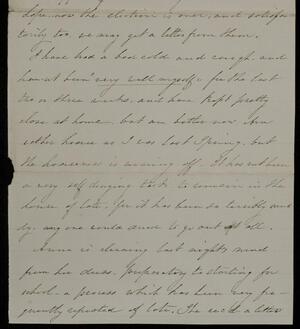 hope, now the election is over, and satisfac-
torily too, we may get a letter from them.
I have had a bad cold and cough, and
haven't been very well myself, for the last
two or three weeks, and have kept pretty
close at home, but am better now. Am
rather hoarse as I was last Spring, but
the hoarseness is wearing off. It has not been
a very self denying task to remain in the
house of late, for it has been so terribly mud-
dy, any one could scarce to go out at all.
Anna is cleaning last night's mud
from her dress, preparatory to starting for
school, a process which has been very fre-
quently repeated of late. She rec'd a letter